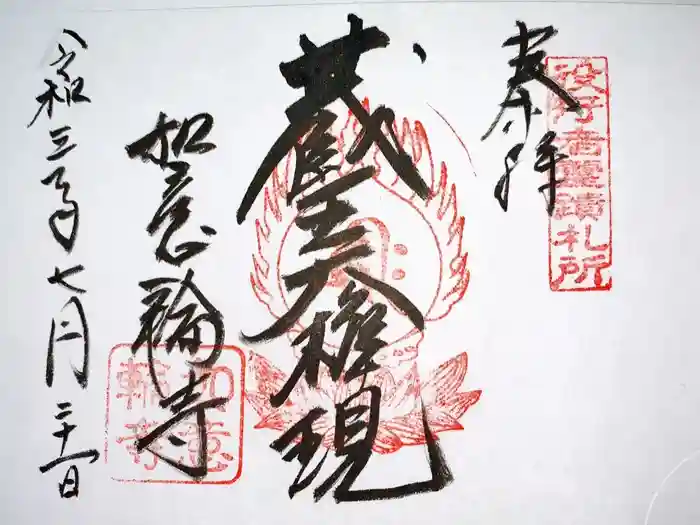 奉拝
役行者霊蹟札所
蔵王大権現
如意輪寺
如意輪寺
令和三年七月二十一日